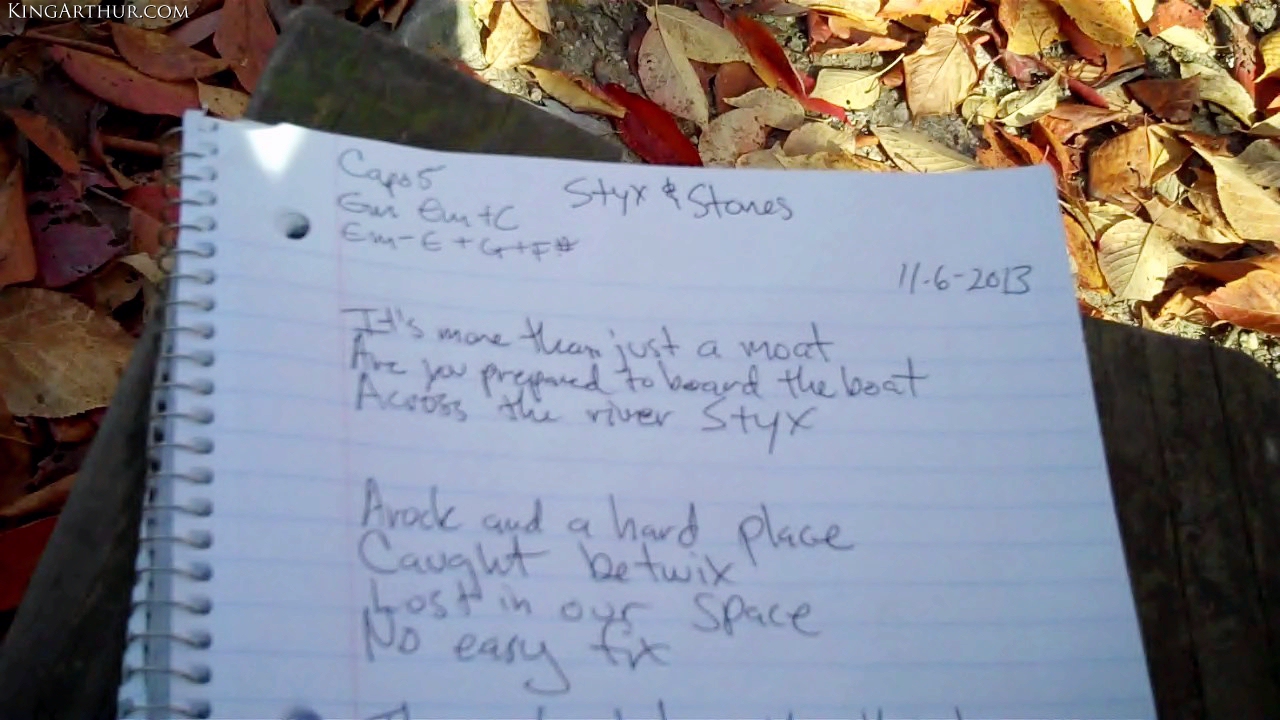 KINGARTHUR.COM
Capo 5
Styx & Stones
Em Em + C
Em - E + G + F#
11-6-2013
It's more than just a moat
Are you prepared to board the boat
Across the river Styx
A rock and a hard place
Caught betwix
Lost in our space
No easy fix